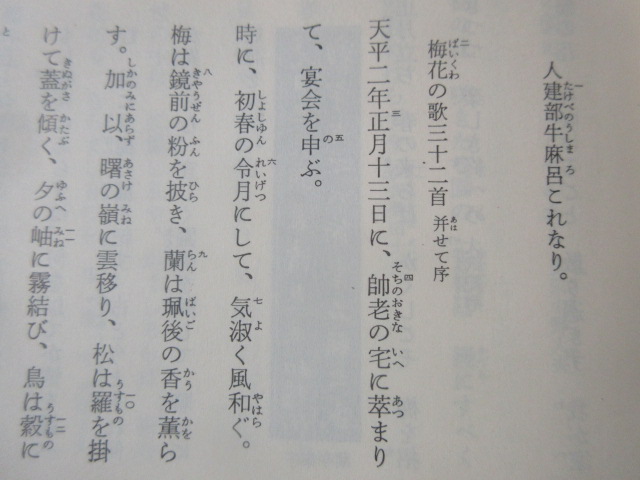 人建部牛麻呂これなり。
梅花の歌三十二首 并せて序
天平二年正月十三日に、帥老の宅に萃まり
て、宴会を申ぶ。
時に、初春の令月にして、気淑く風和ぐ。
梅は鏡前の粉を披き、蘭は珮後の香を薫ら
す。加以、曙の嶺に雲移り、松は羅を掛
けて蓋を傾く、夕の岫に霧結び、鳥は縠に